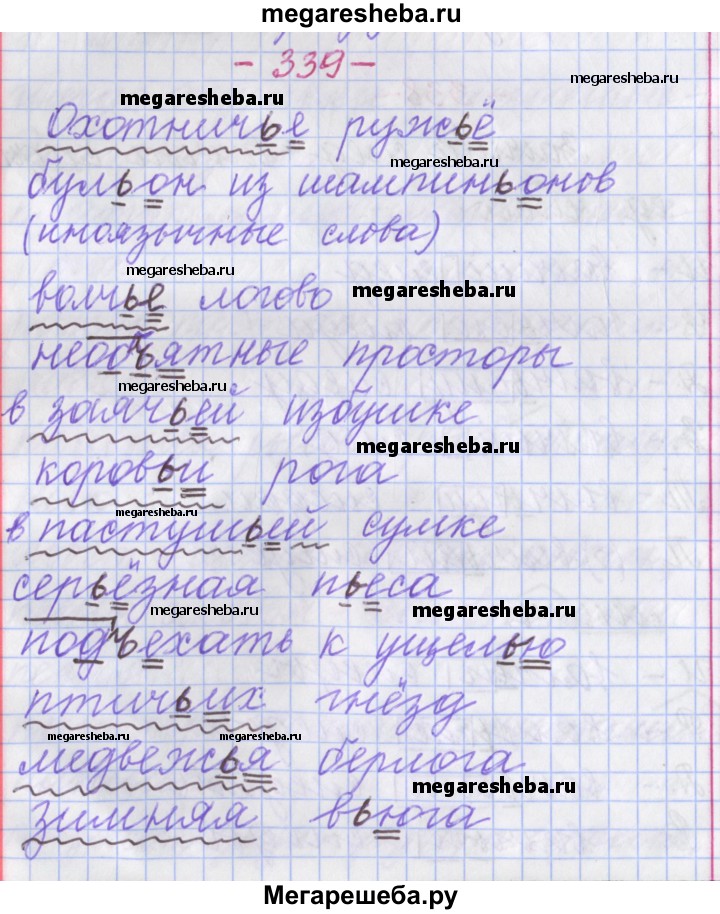 megaresheba.ru
- 339 -
megaresheba.ru
megaresheba.ru
Охотничья ружьё
megaresheba.ru
бульон из шампиньонов
(иноязычные слова)
megaresheba.ru
волчье логово
megaresheba.ru
необъятные просторы
megaresheba.ru
в заячьей избушке
megaresheba.ru
коровьи рога
в пастушьей сумке
серьёзная пьеса
megaresheba.ru
megaresheba.ru
подъехать к ущелью
птичьих гнёзд
megaresheba.ru
megaresheba.ru
медвежья берлога
megaresheba.ru
зимняя вьюга
Мегарешеба.ру